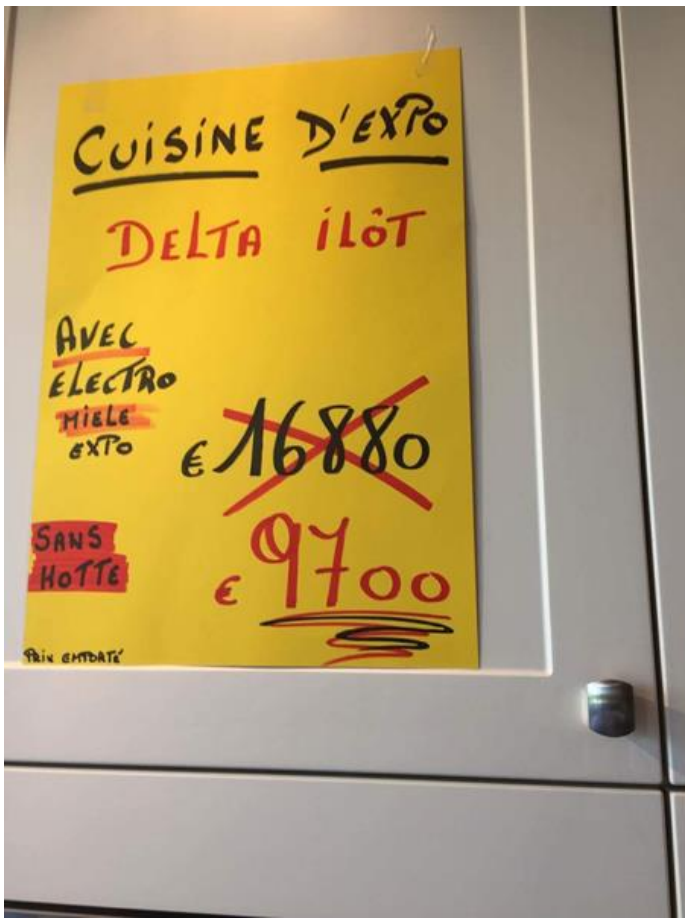 CUISINE D'EXPO
DELTA iLÔT
AVEC
ELECTRO
MIELE
EXPO
€ 16880
SANS
HOTTE
€ 9700
PRIX EMPORTÉ